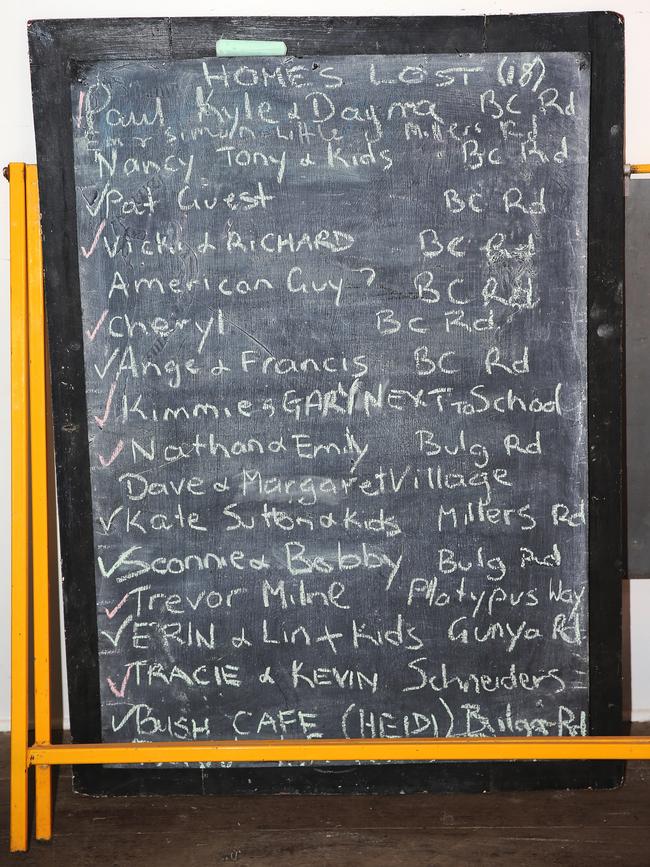 HOMES LOST (18)
Paul Kyle & Dayna BC Rd
simon little Millers Rd
Nancy Tony & Kids BC Rd
✓Pat Guest BC Rd
✓Vicki & RICHARD BC Rd
American Guy? BC Rd
✓Cheryl BC Rd
✓Ange & Francis BC Rd
✓Kimmie & GARY NEXT To School
✓Nathan & Emily Bulg Rd
Dave & Margaret Village
✓Kate Sutton & Kids Millers Rd
✓Sconnie & Bobby Bulg Rd
✓Trevor Milne Platypus Way
✓ERIN & Lin + Kids Gunya Rd
✓TRACIE & KEVIN Schneiders
✓BUSH CAFE (HEIDI) Bulga Rd